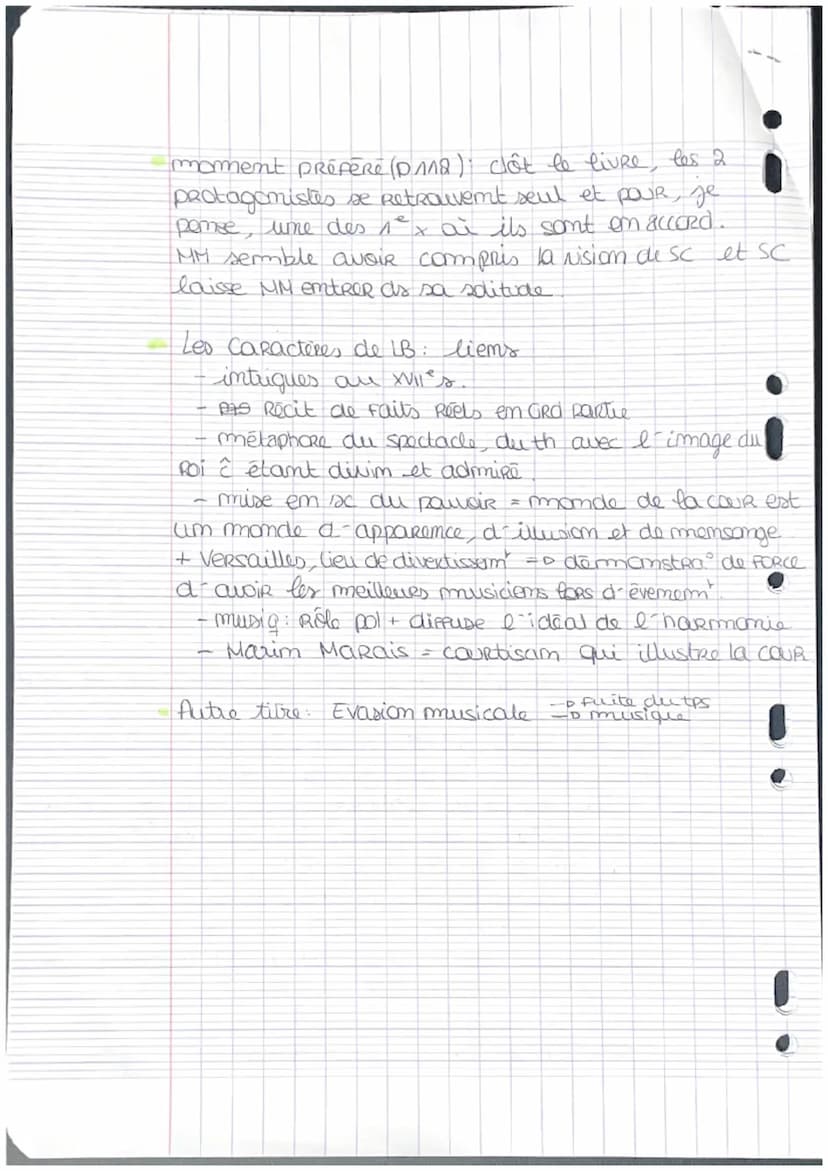 moment PRÉFÉRÉ (p112) : clôt le livre, les 2
protagonistes se retrouvent seul et pour, je
pense, une des 1e x où ils sont en accord.
MM semble avoir compris la vision de SC et SC
laisse MM entrer ds sa solitude.
Les Caractères, de LB : liens
- intrigues au XVIIe s.
- Récit de faits réels en Grd partie
- métaphore du spectacle, du th avec l'image du
Roi ê étant divin et admiré.
- mise en sc du pouvoir = monde de la cour est
un monde d'apparence, d'illusion et de mensonge
+ Versailles, lieu de divertissemt => démonstra° de FORCE
d'avoir les meilleures musiciens lors d'évènemt.
- musiq : Rôle pol + diffuse l'idéal de l'harmonie
- Marin Marais = courtisan qui illustre la cour
Autre titre : Evasion musicale -> fuite du tps
-> musique